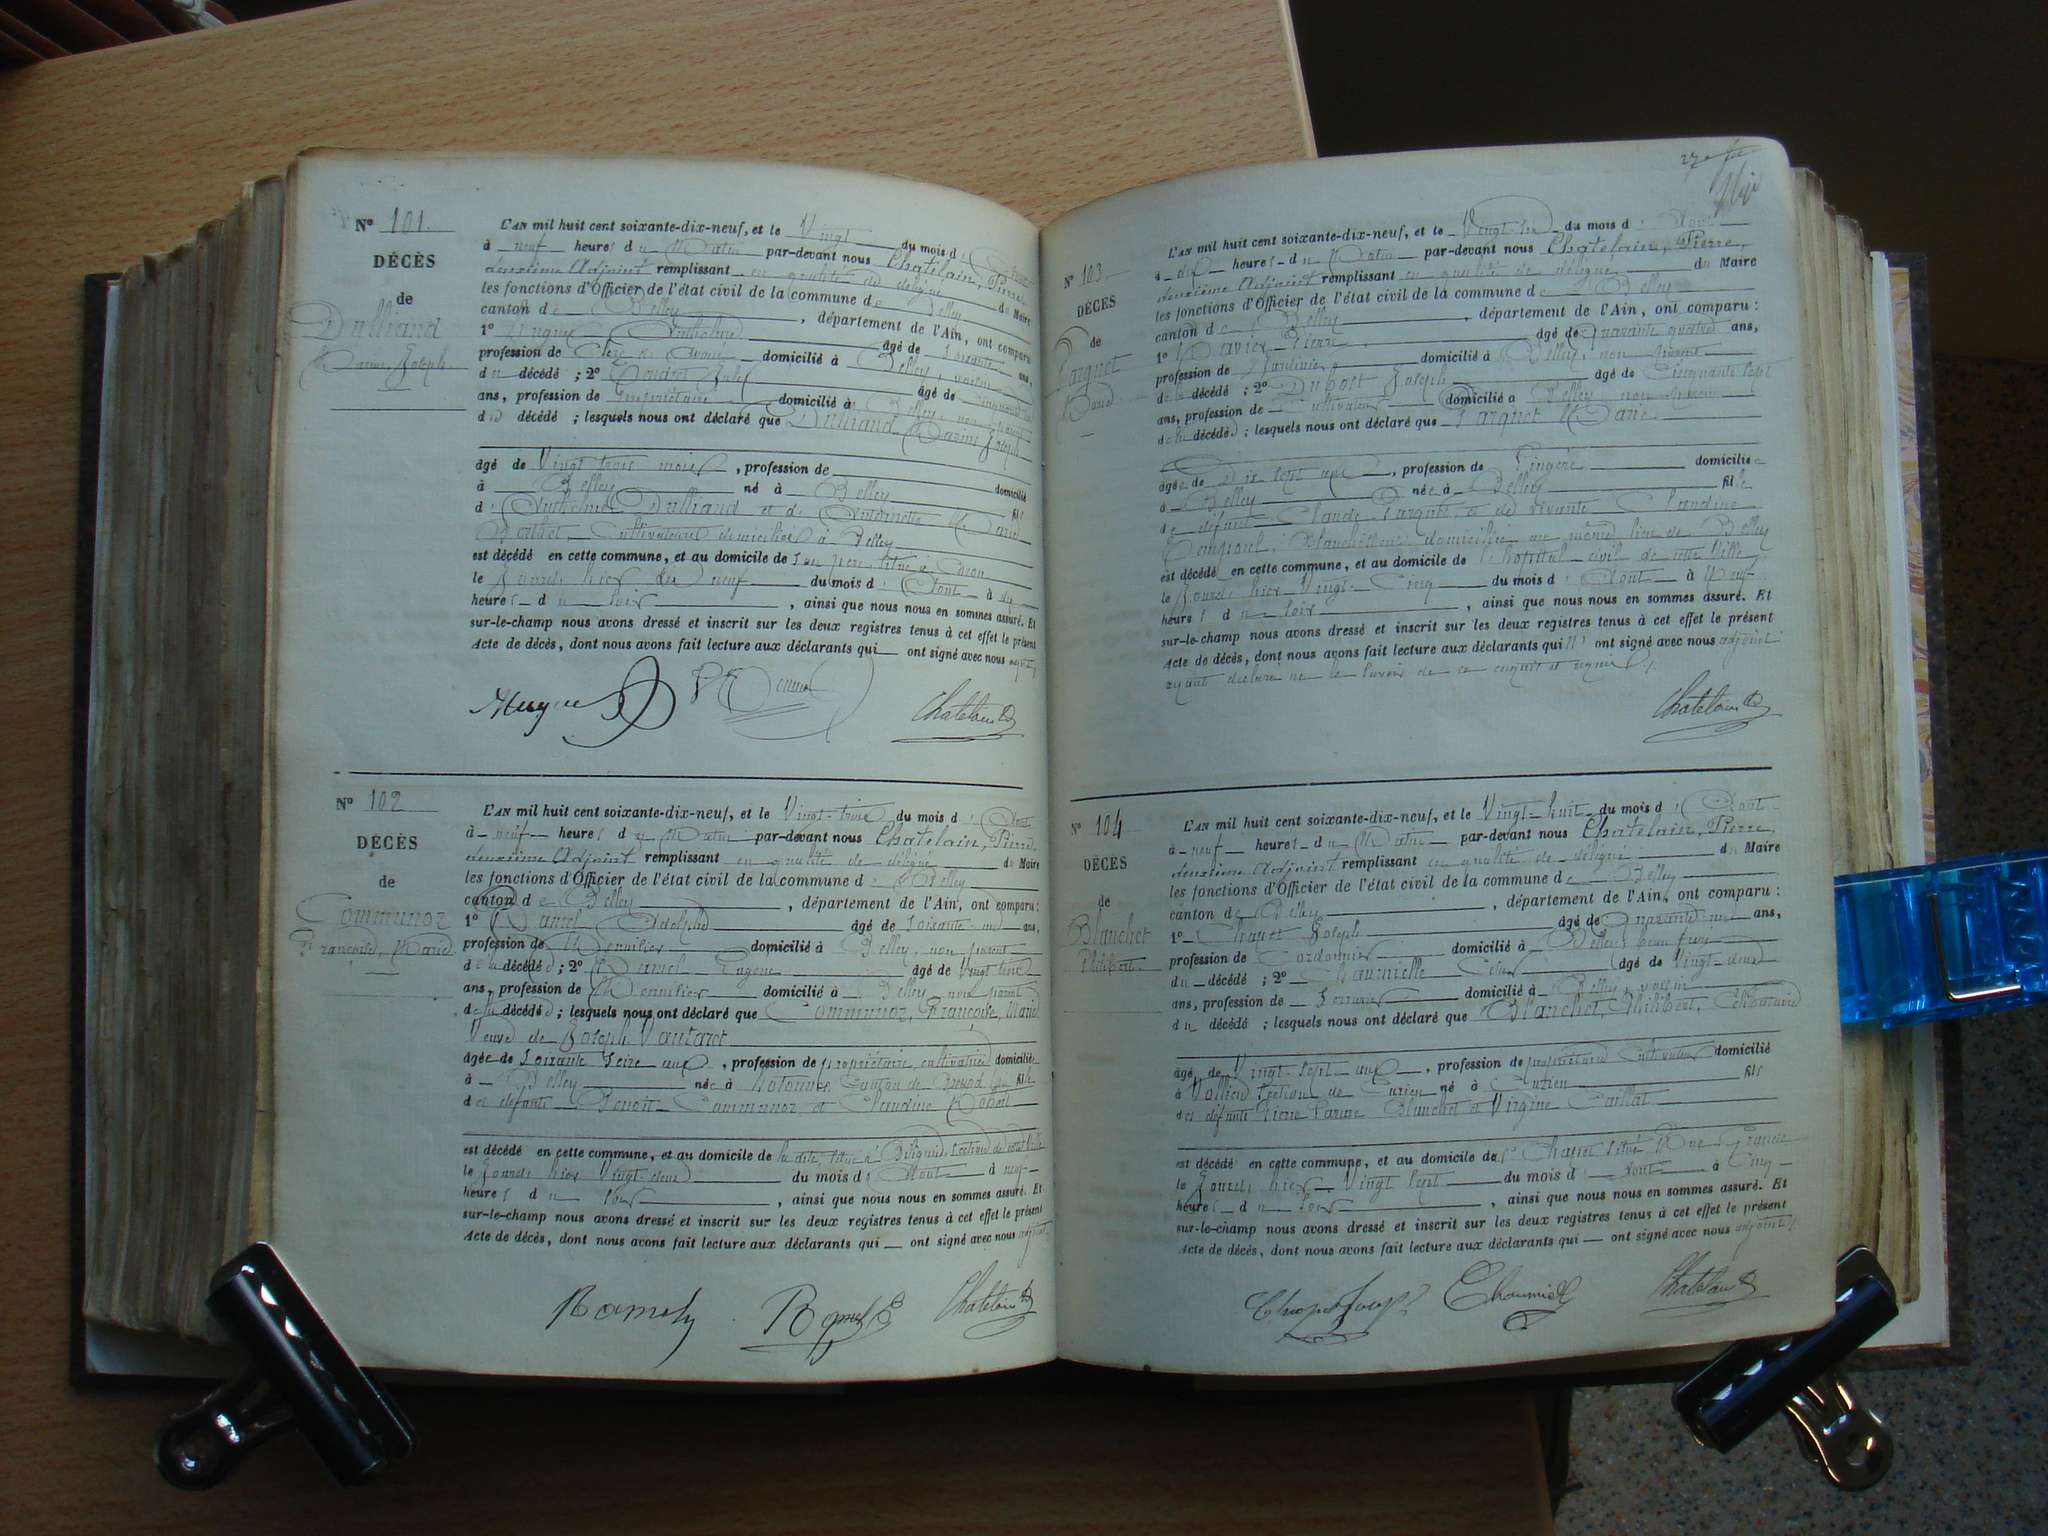 N° 101
DÉCÈS
de
Dulliand
Marin, Joseph
L'AN mil huit cent soixante-dix-neuf, et le Vingt du mois d'Août
à neuf heures du Matin par-devant nous Chatelain, Pierre,
deuxième Adjoint remplissant en qualité de délégué du Maire
les fonctions d'Officier de l'état civil de la commune de Belley
canton de Belley, département de l'Ain, ont comparu
1° Anthelme âgé de soixante ans,
profession de Clerc d'avoué domicilié à Belley, voisin
du décédé ; 2° Jules âgé de
ans, profession de propriétaire domicilié à Belley, non parent
du décédé ; lesquels nous ont déclaré que Dulliand Marin Joseph
âgé de Vingt trois mois, profession de domicilié
à Belley né à Belley fils
d'Anthelme Dulliand et d'Antoinette Marie
Cultivateurs domiciliés à Belley
est décédé en cette commune, et au domicile de son père situé à Coron
le jour d'hier dix neuf du mois d'Août à dix
heures du soir, ainsi que nous nous en sommes assuré. Et
sur-le-champ nous avons dressé et inscrit sur les deux registres tenus à cet effet le présent
Acte de décès, dont nous avons fait lecture aux déclarants qui ont signé avec nous adjoint
Chatelain
N° 102
DÉCÈS
de
Communoz
Françoise, Marie
L'AN mil huit cent soixante-dix-neuf, et le Vingt-trois du mois d'Août
à neuf heures du Matin par-devant nous Chatelain, Pierre,
deuxième Adjoint remplissant en qualité de délégué du Maire
les fonctions d'Officier de l'état civil de la commune de Belley
canton de Belley, département de l'Ain, ont comparu :
1° Ramel Adolphe âgé de soixante-un ans,
profession de Menuisier domicilié à Belley, non parent
de la décédée ; 2° Ramel Eugène âgé de Vingt cinq
ans, profession de Menuisier domicilié à Belley, non parent
de la décédée ; lesquels nous ont déclaré que Communoz, Françoise, Marie
Veuve de Joseph Vautaret
âgée de Soixante Seize ans, profession de propriétaire, cultivatrice domiciliée
à Belley née à Hotonnes, Canton de Brénod (Ain) fille
des défunts Benoit Communoz et Claudine
est décédé en cette commune, et au domicile de la dite, situé à Billignin, section de cette Ville
le jour d'hier Vingt-deux du mois d'Août à neuf
heures du soir, ainsi que nous nous en sommes assuré. Et
sur-le-champ nous avons dressé et inscrit sur les deux registres tenus à cet effet le présent
Acte de décès, dont nous avons fait lecture aux déclarants qui — ont signé avec nous adjoint
Ramel Ramel E Chatelain
27e
N° 103
DÉCÈS
de
Parquet
Marie
L'AN mil huit cent soixante-dix-neuf, et le Vingt-six du mois d'Août
à dix heures du Matin par-devant nous Chatelain, Pierre,
deuxième Adjoint remplissant en qualité de délégué du Maire
les fonctions d'Officier de l'état civil de la commune de Belley
canton de Belley, département de l'Ain, ont comparu :
1° Pierre âgé de Quarante quatre ans,
profession de Jardinier domicilié à Belley, non parent
de la décédé ; 2° Dubost Joseph âgé de Cinquante sept
ans, profession de Cultivateur domicilié à Belley non parent
de la décédé ; lesquels nous ont déclaré que Parquet Marie
âgée de Dix sept ans, profession de Lingère domiciliée
à Belley née à Belley fille
de défunt Claude Parquet et de vivante Claudine
domiciliée au même lieu de Belley
est décédé en cette commune, et au domicile de l'hopital civil de cette Ville
le jour d'hier Vingt-Cinq du mois d'Août à Neuf
heures du soir, ainsi que nous nous en sommes assuré. Et
sur-le-champ nous avons dressé et inscrit sur les deux registres tenus à cet effet le présent
Acte de décès, dont nous avons fait lecture aux déclarants qui n'ont signé avec nous adjoint
ayant déclaré ne le savoir de ce enquis et requis
Chatelain
N° 104
DÉCÈS
de
Blanchet
Philibert
L'AN mil huit cent soixante-dix-neuf, et le Vingt-huit du mois d'Août
à neuf heures du Matin par-devant nous Chatelain, Pierre,
deuxième Adjoint remplissant en qualité de délégué du Maire
les fonctions d'Officier de l'état civil de la commune de Belley
canton de Belley, département de l'Ain, ont comparu :
1° Chapot Joseph âgé de Quarante ans,
profession de Cordonnier domicilié à Belley, beau frère
du décédé ; 2° César âgé de Vingt-deux
ans, profession de domicilié à Belley, voisin
du décédé ; lesquels nous ont déclaré que Blanchet, Philibert,
âgé de Vingt-sept ans, profession de propriétaire Cultivateur domicilié
à section de Curien né à Curien fils
des défunts Pierre Blanchet et Virginie Caillat
est décédé en cette commune, et au domicile de Chapot situé Rue
le jour d'hier Vingt Sept du mois d'août à Cinq
heures du soir, ainsi que nous nous en sommes assuré. Et
sur-le-champ nous avons dressé et inscrit sur les deux registres tenus à cet effet le présent
Acte de décès, dont nous avons fait lecture aux déclarants qui — ont signé avec nous adjoint
Chapot Joseph Chatelain